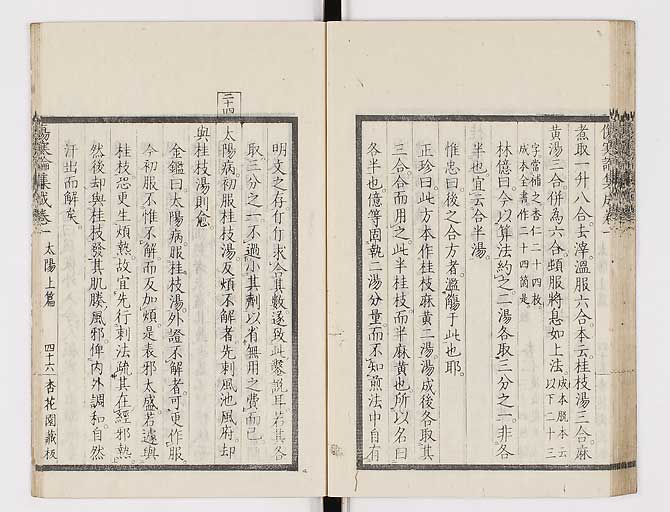 傷寒論集成卷一
煮取一升八合去滓溫服六合本云桂枝湯三合麻
黃湯三合併為六合頓服將息如上法成本脫本云以下二十三
字當補之杏仁二十四枚成本全書作二十四箇是
林億曰今以算法約之二湯各取三分之一非各
半也宜云合半湯
惟忠曰後之合方者濫觴于此也耶
正珍曰此方本作桂枝麻黃二湯湯成後各取其
三合合而用之此半桂枝而半麻黃也所以名曰
各半也億等固執二湯分量而不知煎法中自有
明文之存仃仃求合其數遂致此鑿說耳若其各
取三分之一不過小其劑以省無用之費而已
二十四
太陽病初服桂枝湯反煩不解者先刺風池風府却
與桂枝湯則愈
金鑑曰太陽病服桂枝湯外證不解者可更作服
今初服不惟不解而反加煩是表邪太盛若遽與
桂枝恐更生煩熱故宜先行刺法疏其在經邪熱
然後却與桂枝發其肌腠風邪俾內外調和自然
汗出而解矣
傷寒論集成卷一 太陽上篇 四十六 杏花園藏板